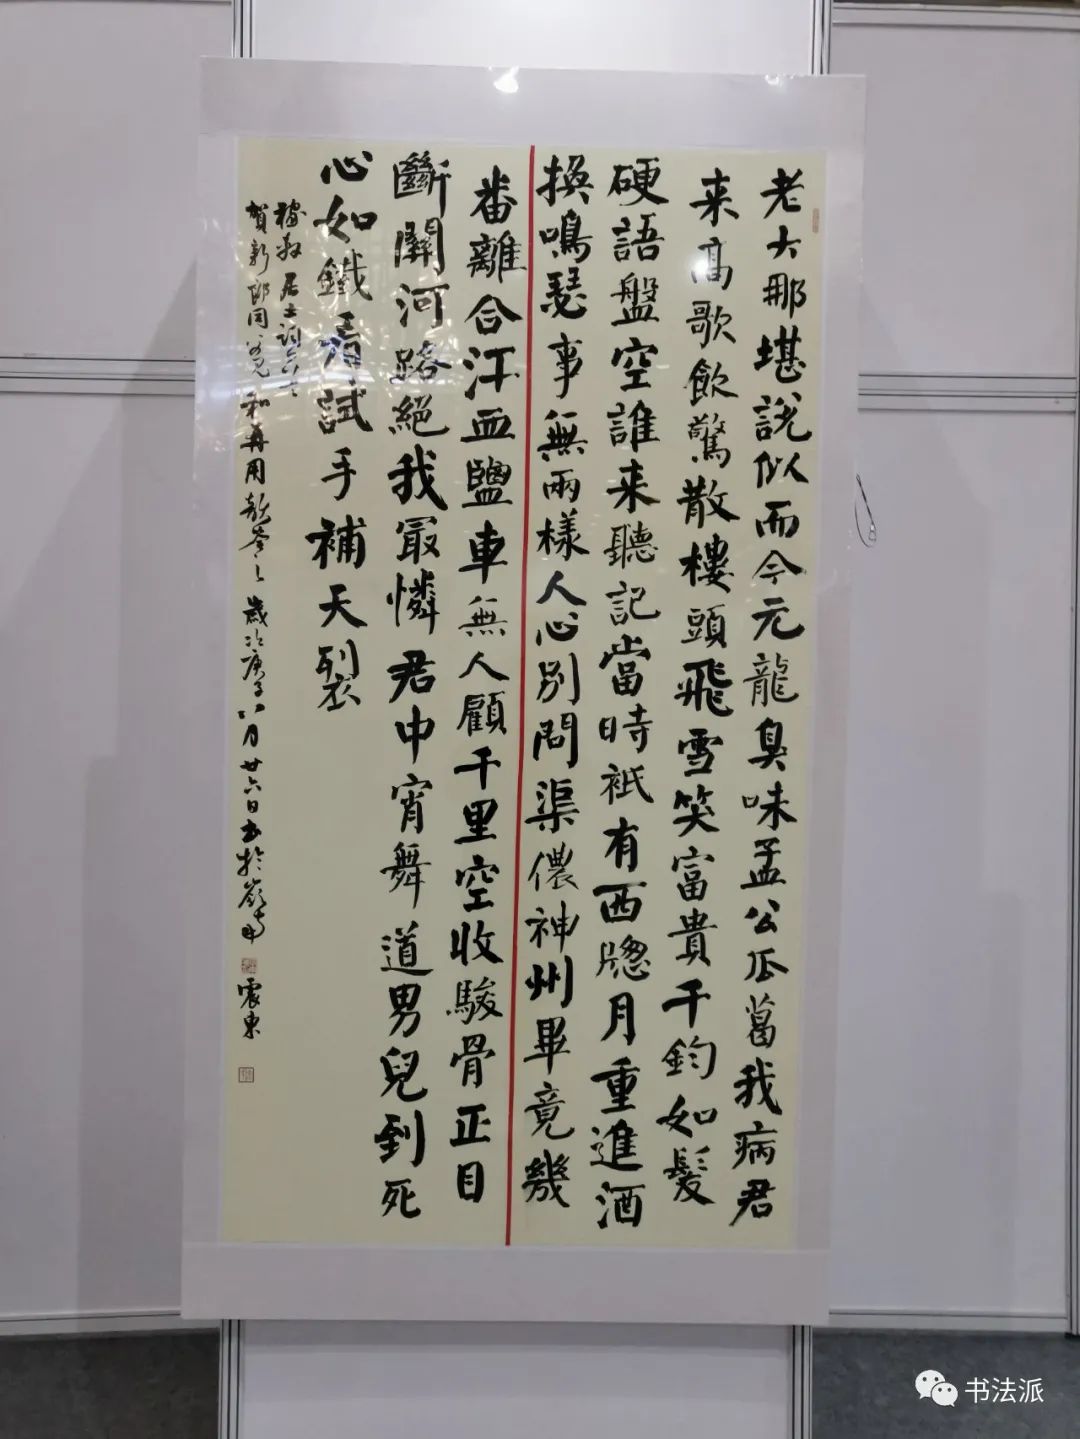 老大那堪說似而今元龍臭味孟公瓜葛我病君
来高歌飲驚散樓頭飛雪笑富貴千鈞如髮
硬語盤空誰来聽記當時衹有西牕月重進酒
換鳴瑟事無兩樣人心別問渠儂神州畢竟幾
番離合汗血鹽車無人顧千里空收駿骨正目
斷關河路絕我最憐君中宵舞道男兒到死
心如鐵看試手補天裂
稼軒居士詞
賀新郎同父見和再用韻答之歲次庚子八月廿六日書於嶺南
震東
书法派